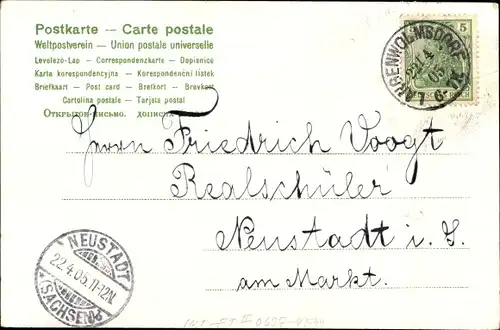 Postkarte — Carte postale
Weltpostverein — Union postale universelle
Levelező-Lap — Correspondenzkarte — Dopisnice
Karta korespondencyjna — Korespondenční lístek
Briefkaart — Post card — Brefkort — Brevkort
Cartolina postale — Tarjeta postal
Открытое письмо.
5
22.4
05
6-7N.
Herrn Friedrich Voogt
Realschüler
Neustadt i. S.
am Markt.
NEUSTADT
22.4.05.11-12N.
(SACHSEN)